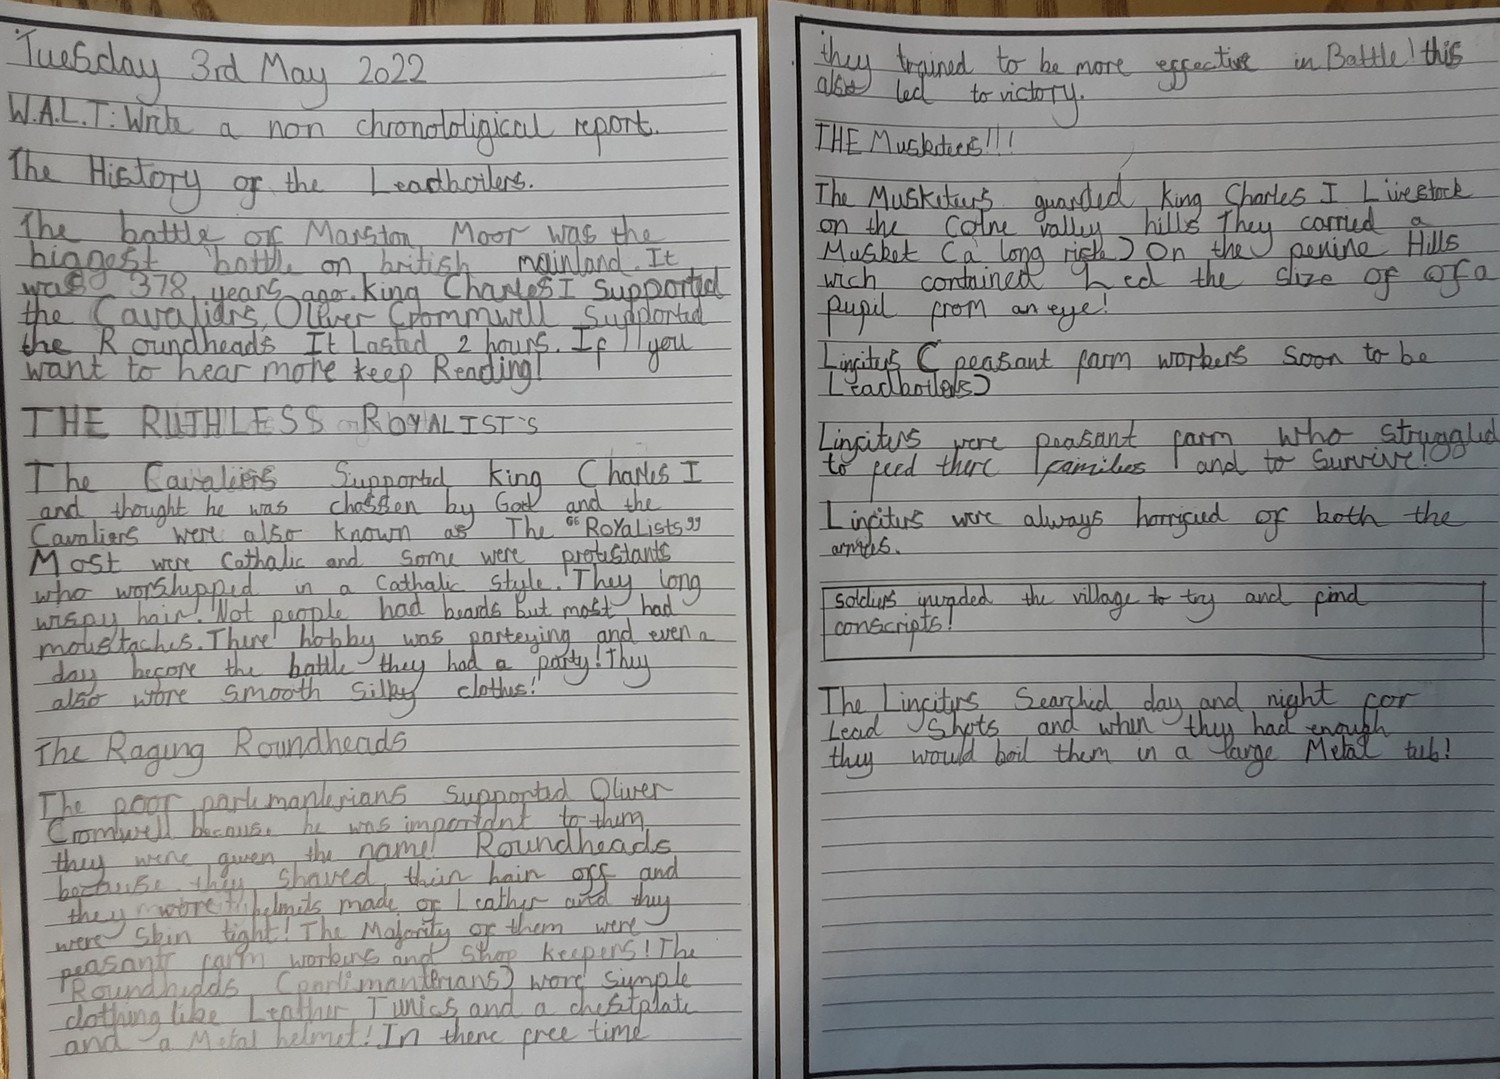 Tuesday 3rd May 2022
W.A.L.T: Write a non chronololigical report.
The History of the Leadboilers.
The battle of Marston Moor was the
biggest battle on british mainland. It
was 378 years ago. king Charles I supported
the Cavaliars, Oliver Crommwell Supported
the Roundheads It Lasted 2 hours. If you
want to hear more keep Reading!
THE RUTHLESS ROYALIST'S
The Cavaliers Supported king Charles I
and thought he was chossen by God and the
Cavaliers were also known as The "ROYALists"
Most were Cathalic and some were protestants
who worshipped in a Cathalic style. They long
wispy hair! Not people had beards but most had
moustaches. There hobby was parteying and even a
day before the battle they had a party! They
also wore smooth silky clothes!
The Raging Roundheads
The poor Supported Oliver
Cromwell because he was important to them
they were given the name! Roundheads
because they shaved their hair off and
they wore helmets made of Leather and they
were skin tight! The Majority of them were
peasant farm workers and shop keepers! The
Roundheads (parlimanterians) wore simple
clothing like Leather Tunics and a chestplate
and a Metal helmet! In there free time
they trained to be more effective in Battle! this
also led to victory.
THE Musketeers!!!
The Musketeers guarded king Charles I Livestock
on the Colne valley hills They carried a
Musket (a long rifle) On the penine Hills
wich contained Led the size of of a
pupil from an eye!
Linfiters (peasant farm workers soon to be
Leadboilers)
Linfiters were peasant farm who struggled
to feed there families and to survive!
Linfiters were always horrifued of both the
armies.
soldiers invaded the village to try and find
conscripts!
The Linfiters Searched day and night for
Lead Shots and when they had enough
they would boil them in a large Metal tub!